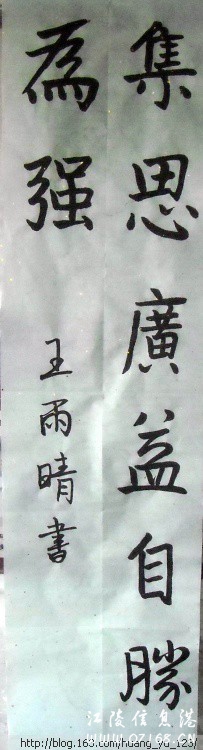 集思廣益自勝
為强
王雨晴書
江陵信息港
WWW.OZ168.CN
http://blog.163.com/huang_yu_123/